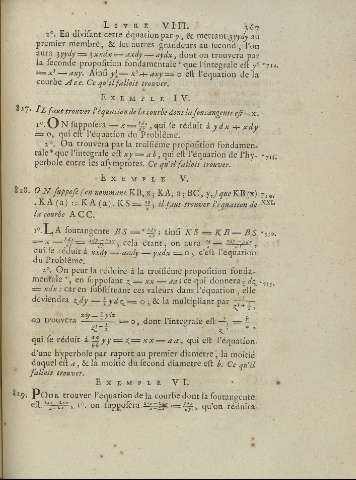 LIVRE VIII. 567
2°. En divisant cette équation par y, & mettant 3yydy au
premier membre, & les autres grandeurs au second, l'on
aura 3yydy = 3xxdx — axdy — aydx, dont on trouvera par
la seconde proposition fondamentale * que l'integrale est y³ *714.
= x³ — axy. Ainsi y³ — x³ + axy = 0 est l'équation de la
courbe. Ce qu'il falloit trouver.
EXEMPLE IV.
827. IL faut trouver l'équation de la courbe dont la soutangente est — x.
1°. ON supposera — x = , qui se réduit à ydx + xdy
= 0, qui est l'équation du Problême.
2°. On trouvera par la troisième proposition fondamen-
tale * que l'integrale est xy = ab, qui est l'équation de l'hy- *715.
perbole entre les asymptotes. Ce qu'il falloit trouver.
EXEMPLE V.
828. ON suppose (en nommant KB, x; KA, a; BC, y,) que KB (x)
. KA (a) :: KA (a). KS = ; il faut trouver l'équation de XXI.
la courbe ACC.
1°. LA soutangente BS = ; ainsi KB = KB — BS
— x — = , cela étant, on aura = ,
qui se réduit à xxdy — aady — yxdx = 0, c'est l'équation
du Problême.
2°. On peut la réduire à la troisième proposition fonda-
mentale *, en supposant z = xx — aa; ce qui donnera dz *715.
= xdx: car en substituant ces valeurs dans l'équation, elle
deviendra zdy — ydz = 0, & la multipliant par ,
on trouvera = 0, dont l'integrale est = ,
qui se réduit à yy = xx — aa, qui est l'équation
d'une hyperbole par raport au premier diametre, la moitié
duquel est a, & la moitié du second diametre est b. Ce qu'il
falloit trouver.
EXEMPLE VI.
829. POUR trouver l'équation de la courbe dont la soutangente
est , 1°. on supposera = , qu'on réduira